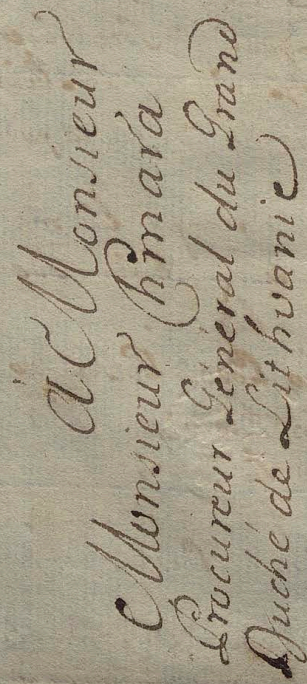 à Monsieur
Monsieur Chmara
Procureur Géneral du Grand
Duché de Lithvanie